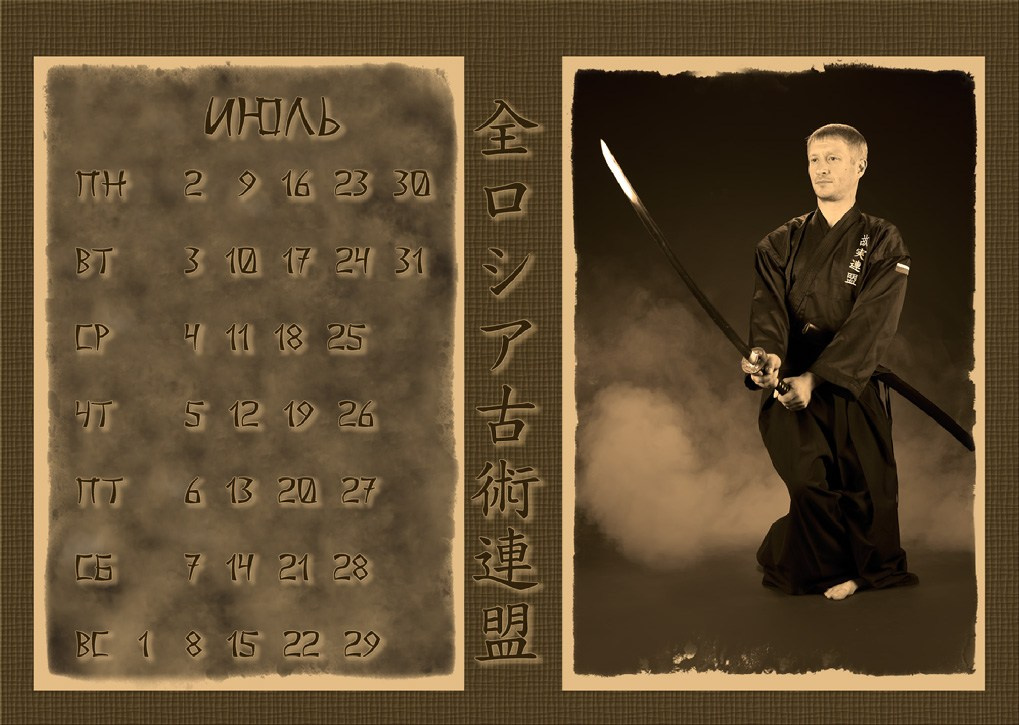 ИЮЛЬ
ПН 2 9 16 23 30
ВТ 3 10 17 24 31
СР 4 11 18 25
ЧТ 5 12 19 26
ПТ 6 13 20 27
СБ 7 14 21 28
ВС 1 8 15 22 29
全ロシア古術連盟